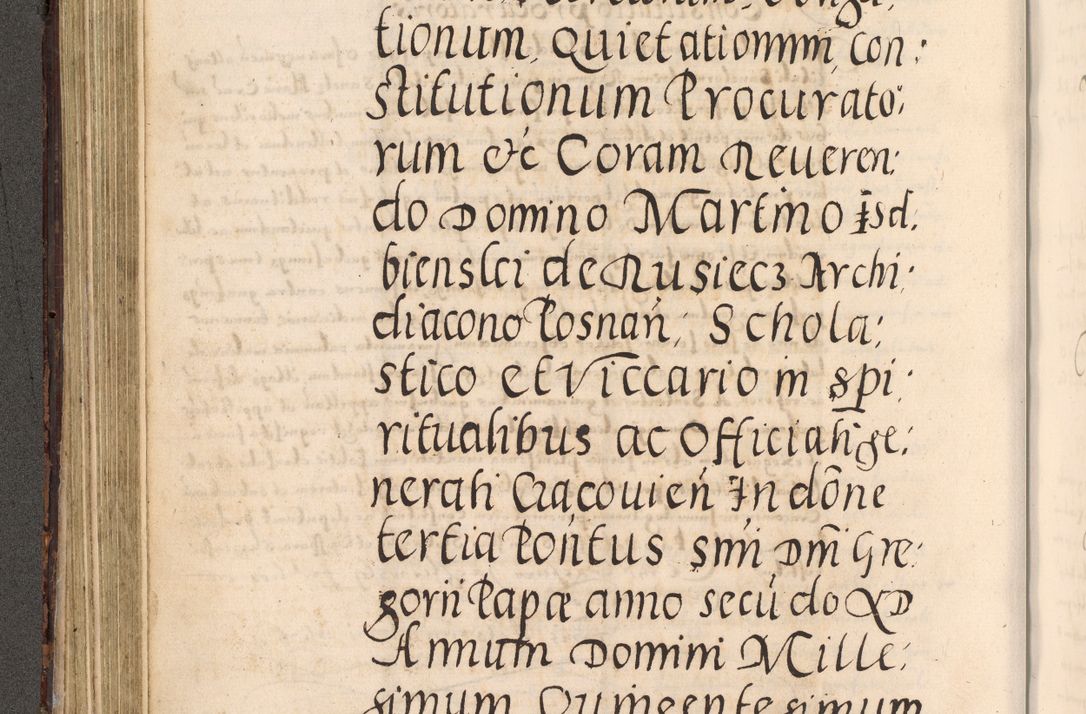 tionum, Quietationum, Con:
stitutionum Procurato:
rum &c Coram Reueren:
do Domino Martino Isd:
bienslci de Rusiecz Archi:
diacono Posnań: Schola:
stico et Viccario in spi:
ritualibus ac Officiali ge:
nerali Cracouień In dōne
tertia Pontus Smi Dm̄ Gre:
gorii Papæ anno secūdo AD
Annum Domini Mille:
simum Quingentesimum